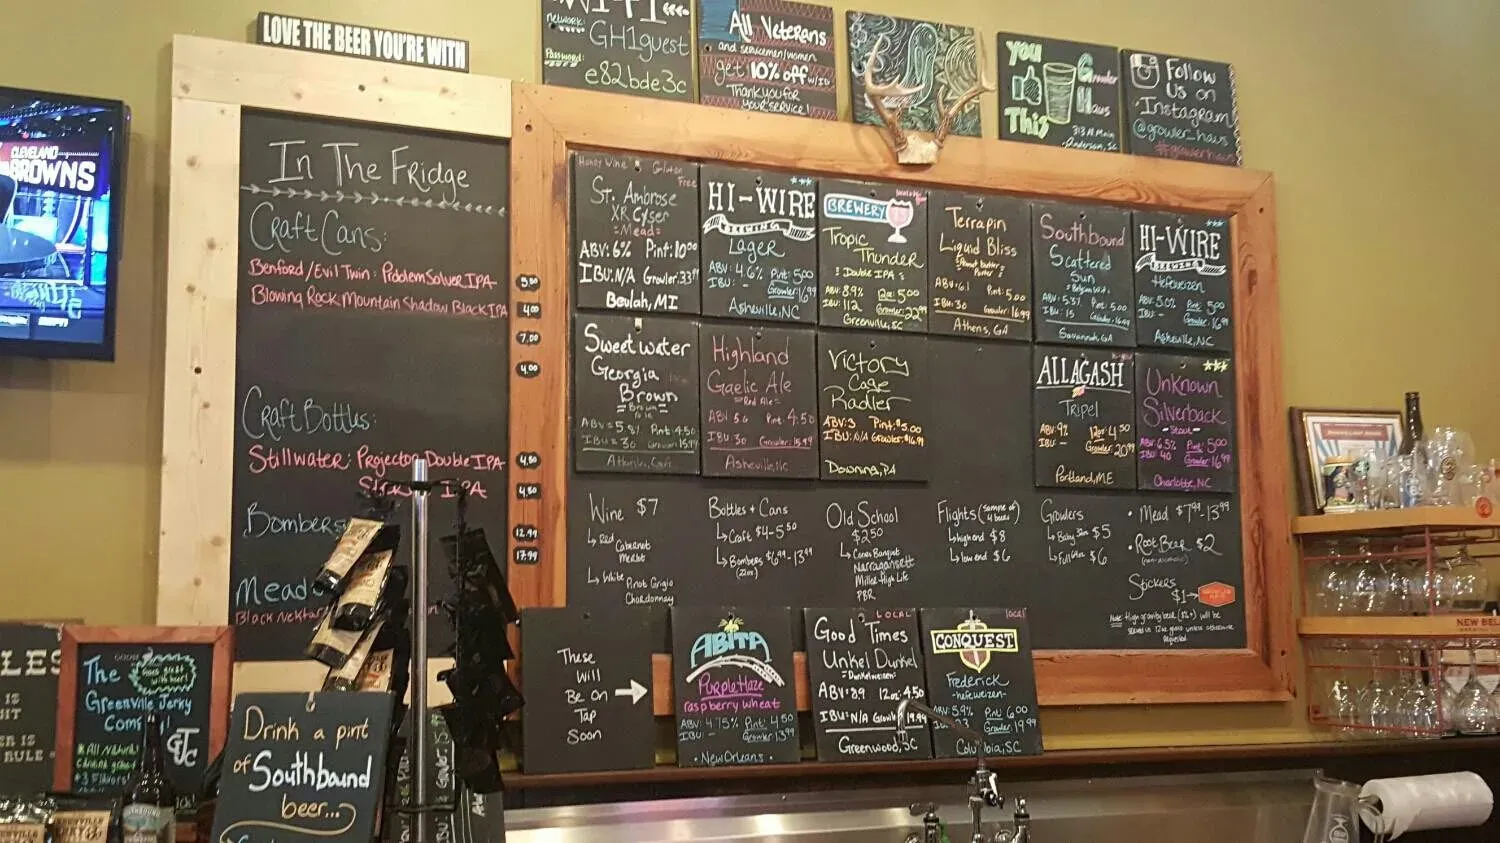 LOVE THE BEER YOU'RE WITH
network:
GH1guest
Password:
e82bde3c
All Veterans
and servicemen/women
get 10% off w/ID
Thank you for
your service!
you
This
Growler
Haus
313 N. Main
Anderson, SC
Follow
Us on
Instagram!
@growler_haus
#growlerhaus
CLEVELAND
BROWNS
ESPN
In The Fridge
Craft Cans:
Benford/Evil Twin: Problem Solver IPA 5.50
Blowing Rock Mountain Shadow Black IPA 4.00
7.00
4.00
Craft Bottles:
Stillwater: Projector Double IPA 4.50
IPA 4.50
Bombers 12.99
17.99
Mead
Black Nektar
Honey Wine Gluten Free
St. Ambrose
XR Cyser
=Mead=
ABV: 6% Pint: 10.00
IBU: N/A Growler: 33.99
Beulah, MI
HI-WIRE
BREWING
Lager
ABV: 4.6% Pint: 5.00
IBU: - Growler: 16.99
Asheville, NC
BREWERY
Tropic
Thunder
Double IPA
ABV: 8.9% 12oz: 5.00
IBU: 112 Growler: 22.99
Greenville, SC
Terrapin
Liquid Bliss
Peanut butter
Porter
ABV: 6.1 Pint: 5.00
IBU: 30 Growler: 16.99
Athens, GA
Southbound
Scattered
Sun
ABV: 5.3% Pint: 5.00
IBU: 15 Growler: 16.99
Savannah, GA
HI-WIRE
BREWING
Hefeweizen
ABV: 5.0% Pint: 5.00
IBU: - Growler: 16.99
Asheville, NC
Sweetwater
Georgia
Brown
ABV = 5.8% Pint: 4.50
IBU = 30 Growler: 15.99
Highland
Gaelic Ale
=Red Ale=
ABV 5.6 Pint: 4.50
IBU: 30 Growler: 15.99
Asheville, NC
Victory
Cage
Radler
ABV: 3 Pint: $5.00
IBU: N/A Growler: $16.99
Downing, PA
ALLAGASH
Tripel
ABV: 9% 12oz: 4.50
IBU: - Growler: 20.99
Portland, ME
Unknown
Silverback
-Stout-
ABV: 6.5% Pint: 5.00
IBU: 40 Growler: 16.99
Charlotte, NC
Wine $7
Red
Cabernet
Merlot
White Pinot Grigio
Chardonnay
Bottles + Cans
Craft $4-5.50
Bombers $6.99-13.99
(22oz)
Old School
$2.50
Coors Banquet
Narragansett
Miller High Life
PBR
Flights (sample of 4 beers)
high end $8
low end $6
Growlers
Baby 32oz $5
Full 64oz $6
• Mead $7.99-13.99
• Root Beer $2
(non-alcoholic)
Stickers
$1
Note: High gravity beer (8%+) will be
served in 12oz glass unless otherwise
requested
These
Will
Be On
Tap
Soon
ABITA
Purple Haze
raspberry wheat
ABV: 4.75% Pint: 4.50
IBU: - Growler: 13.99
• New Orleans •
LOCAL
Good Times
Unkel Dunkel
=Dunkelweizen=
ABV: 8.9 12oz: 4.50
IBU: N/A Growler 19.99
Greenwood, SC
local
CONQUEST
Frederick
-hefeweizen-
ABV: 5.9% Pint: 6.00
Growler: 19.99
The
Greenville Jerky
Goes great
with beer!
GJC
* All Natural
* 3 Flavors!
Drink a pint
of Southbound
beer...
NEW BEL